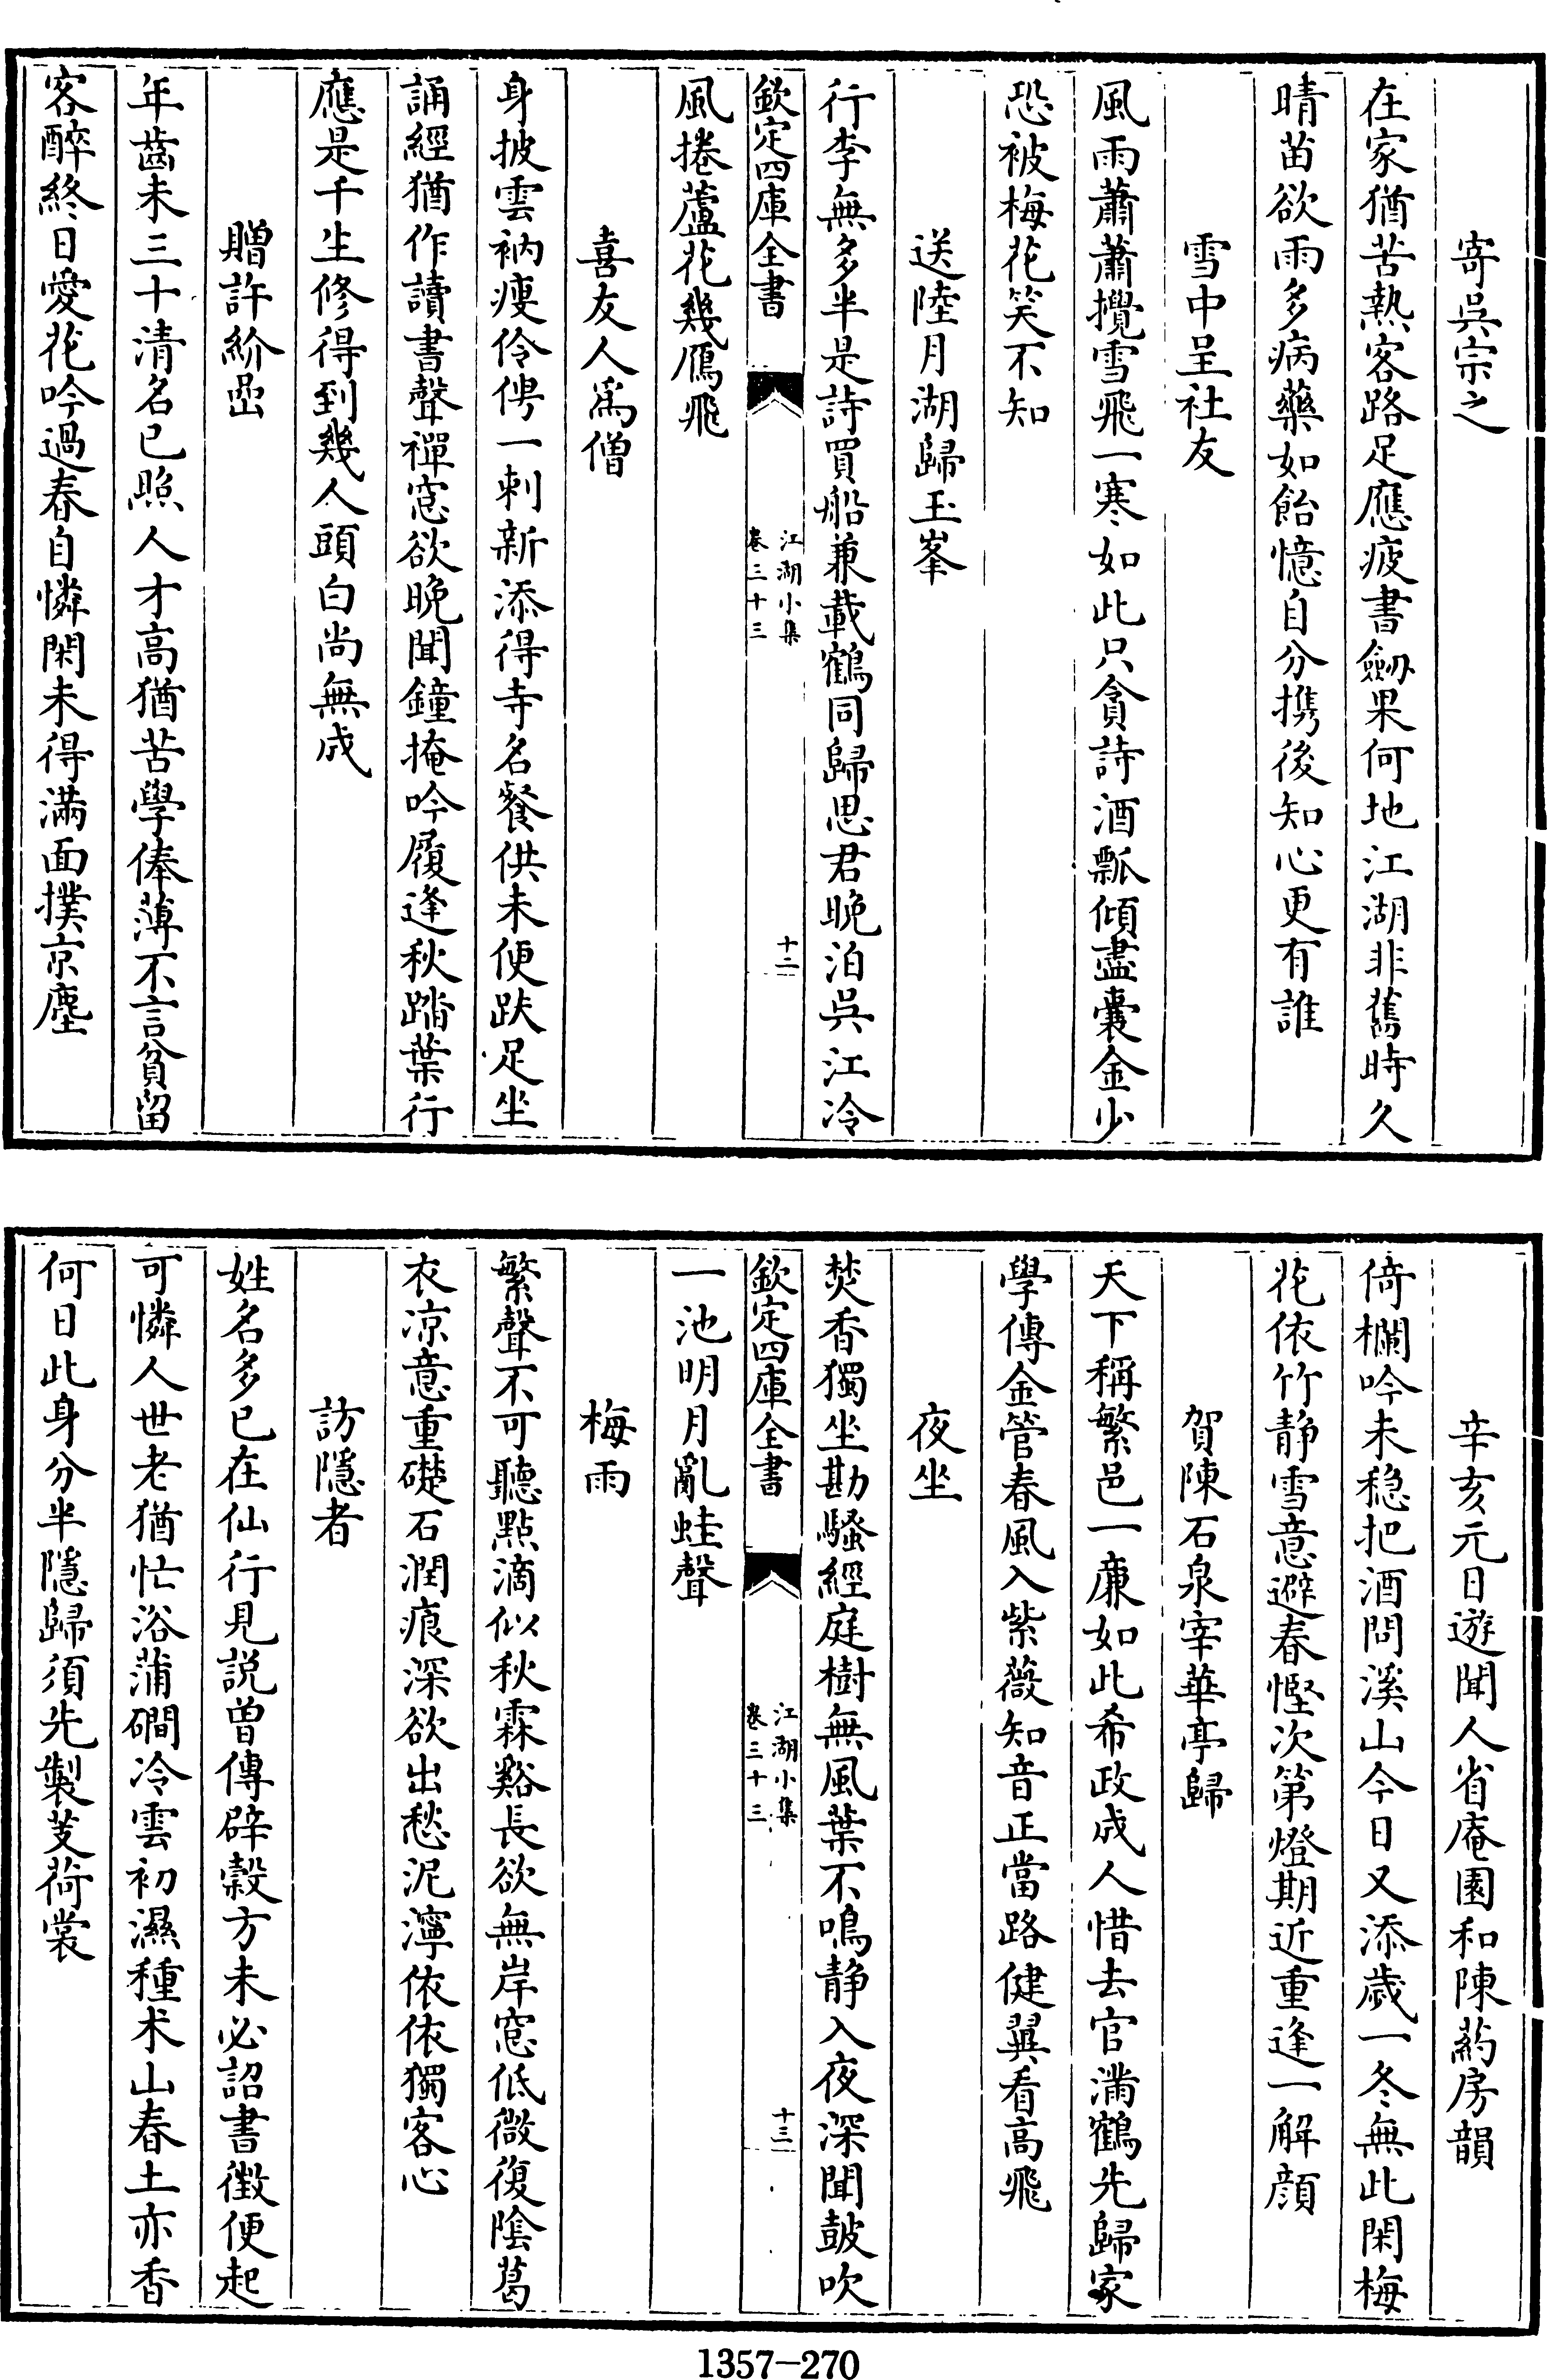 寄吳宗之
在家猶苦熱客路足應疲書劒果何地江湖非舊時久
晴苗欲雨多病藥如飴憶自分携後知心更有誰
雪中呈社友
風雨蕭蕭攪雪飛一寒如此只貪詩酒瓢傾盡囊金少
恐被梅花笑不知
送陸月湖歸玉峯
行李無多半是詩買船兼載鶴同歸思君晚泊吳江冷
欽定四庫全書
江湖小集
卷三十三
十二
風捲蘆花幾鴈飛
喜友人爲僧
身披雲衲瘦伶俜一刺新添得寺名餐供未便趺足坐
誦經猶作讀書聲禪窓欲晚聞鐘掩吟履逢秋踏葉行
應是千生修得到幾人頭白尚無成
贈許紒嵒
年齒未三十清名已照人才高猶苦學俸薄不言貧留
客醉終日愛花吟過春自憐閑未得滿面撲京塵
辛亥元日遊聞人省庵園和陳葯房韻
倚欄吟未穏把酒問溪山今日又添歲一冬無此閑梅
花依竹静雪意避春慳次第燈期近重逢一解顔
賀陳石泉宰華亭歸
天下稱繁邑一亷如此希政成人惜去官滿鶴先歸家
學傳金管春風入紫薇知音正當路健翼看高飛
夜坐
焚香獨坐勘騷經庭樹無風葉不鳴静入夜深聞鼓吹
欽定四庫全書
江湖小集
卷三十三
十三
一池明月亂蛙聲
梅雨
繁聲不可聽點滴似秋霖谿長欲無岸窓低微復陰葛
衣凉意重礎石潤痕深欲出愁泥濘依依獨客心
訪隱者
姓名多已在仙行見説曾傳辟榖方未必詔書徵便起
可憐人世老猶忙浴蒲磵冷雲初濕種术山春土亦香
何日此身分半隱歸須先製芰荷裳
1357-270